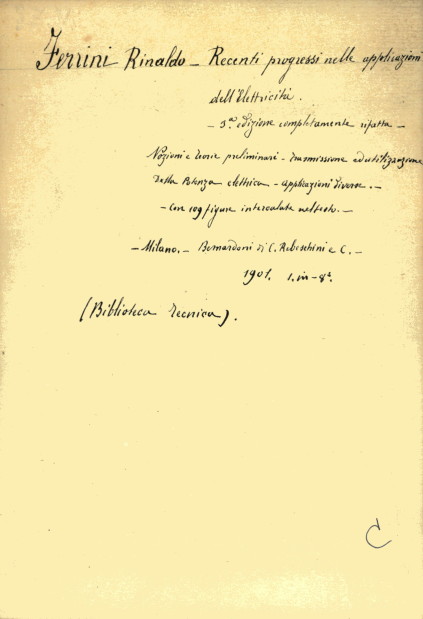 Ferrini Rinaldo – Recenti progressi nelle applicazioni
dell'Elettricità.
– 3.ª edizione completamente rifatta –
Nozioni e teorie preliminari – trasmissione ed utilizzazione
della Potenza elettrica – applicazioni diverse. –
– con 109 figure intercalate nel testo. –
– Milano. – Bernardoni di C. Rebeschini e C. –
1901. 1. in – 8.º
(Biblioteca Tecnica).
C